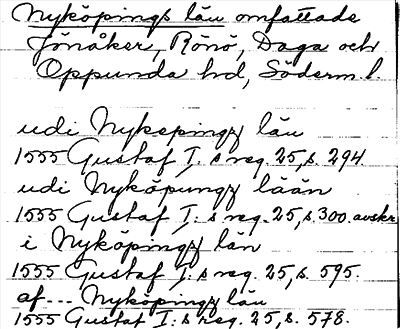 Nyköpings län omfattade
Jönåker, Rönö, Daga och
Oppunda hd, Söderm.l.
udi Nykepingz län
1555 Gustaf I:s reg. 25, s. 294
udi Nyköpungz lään
1555 Gustaf I:s reg. 25, s. 300. avskr.
i Nyköpingz län
1555 Gustaf I:s reg. 25, s. 595.
af --- Nyköpingz län
1555 Gustaf I:s reg. 25, s. 578.